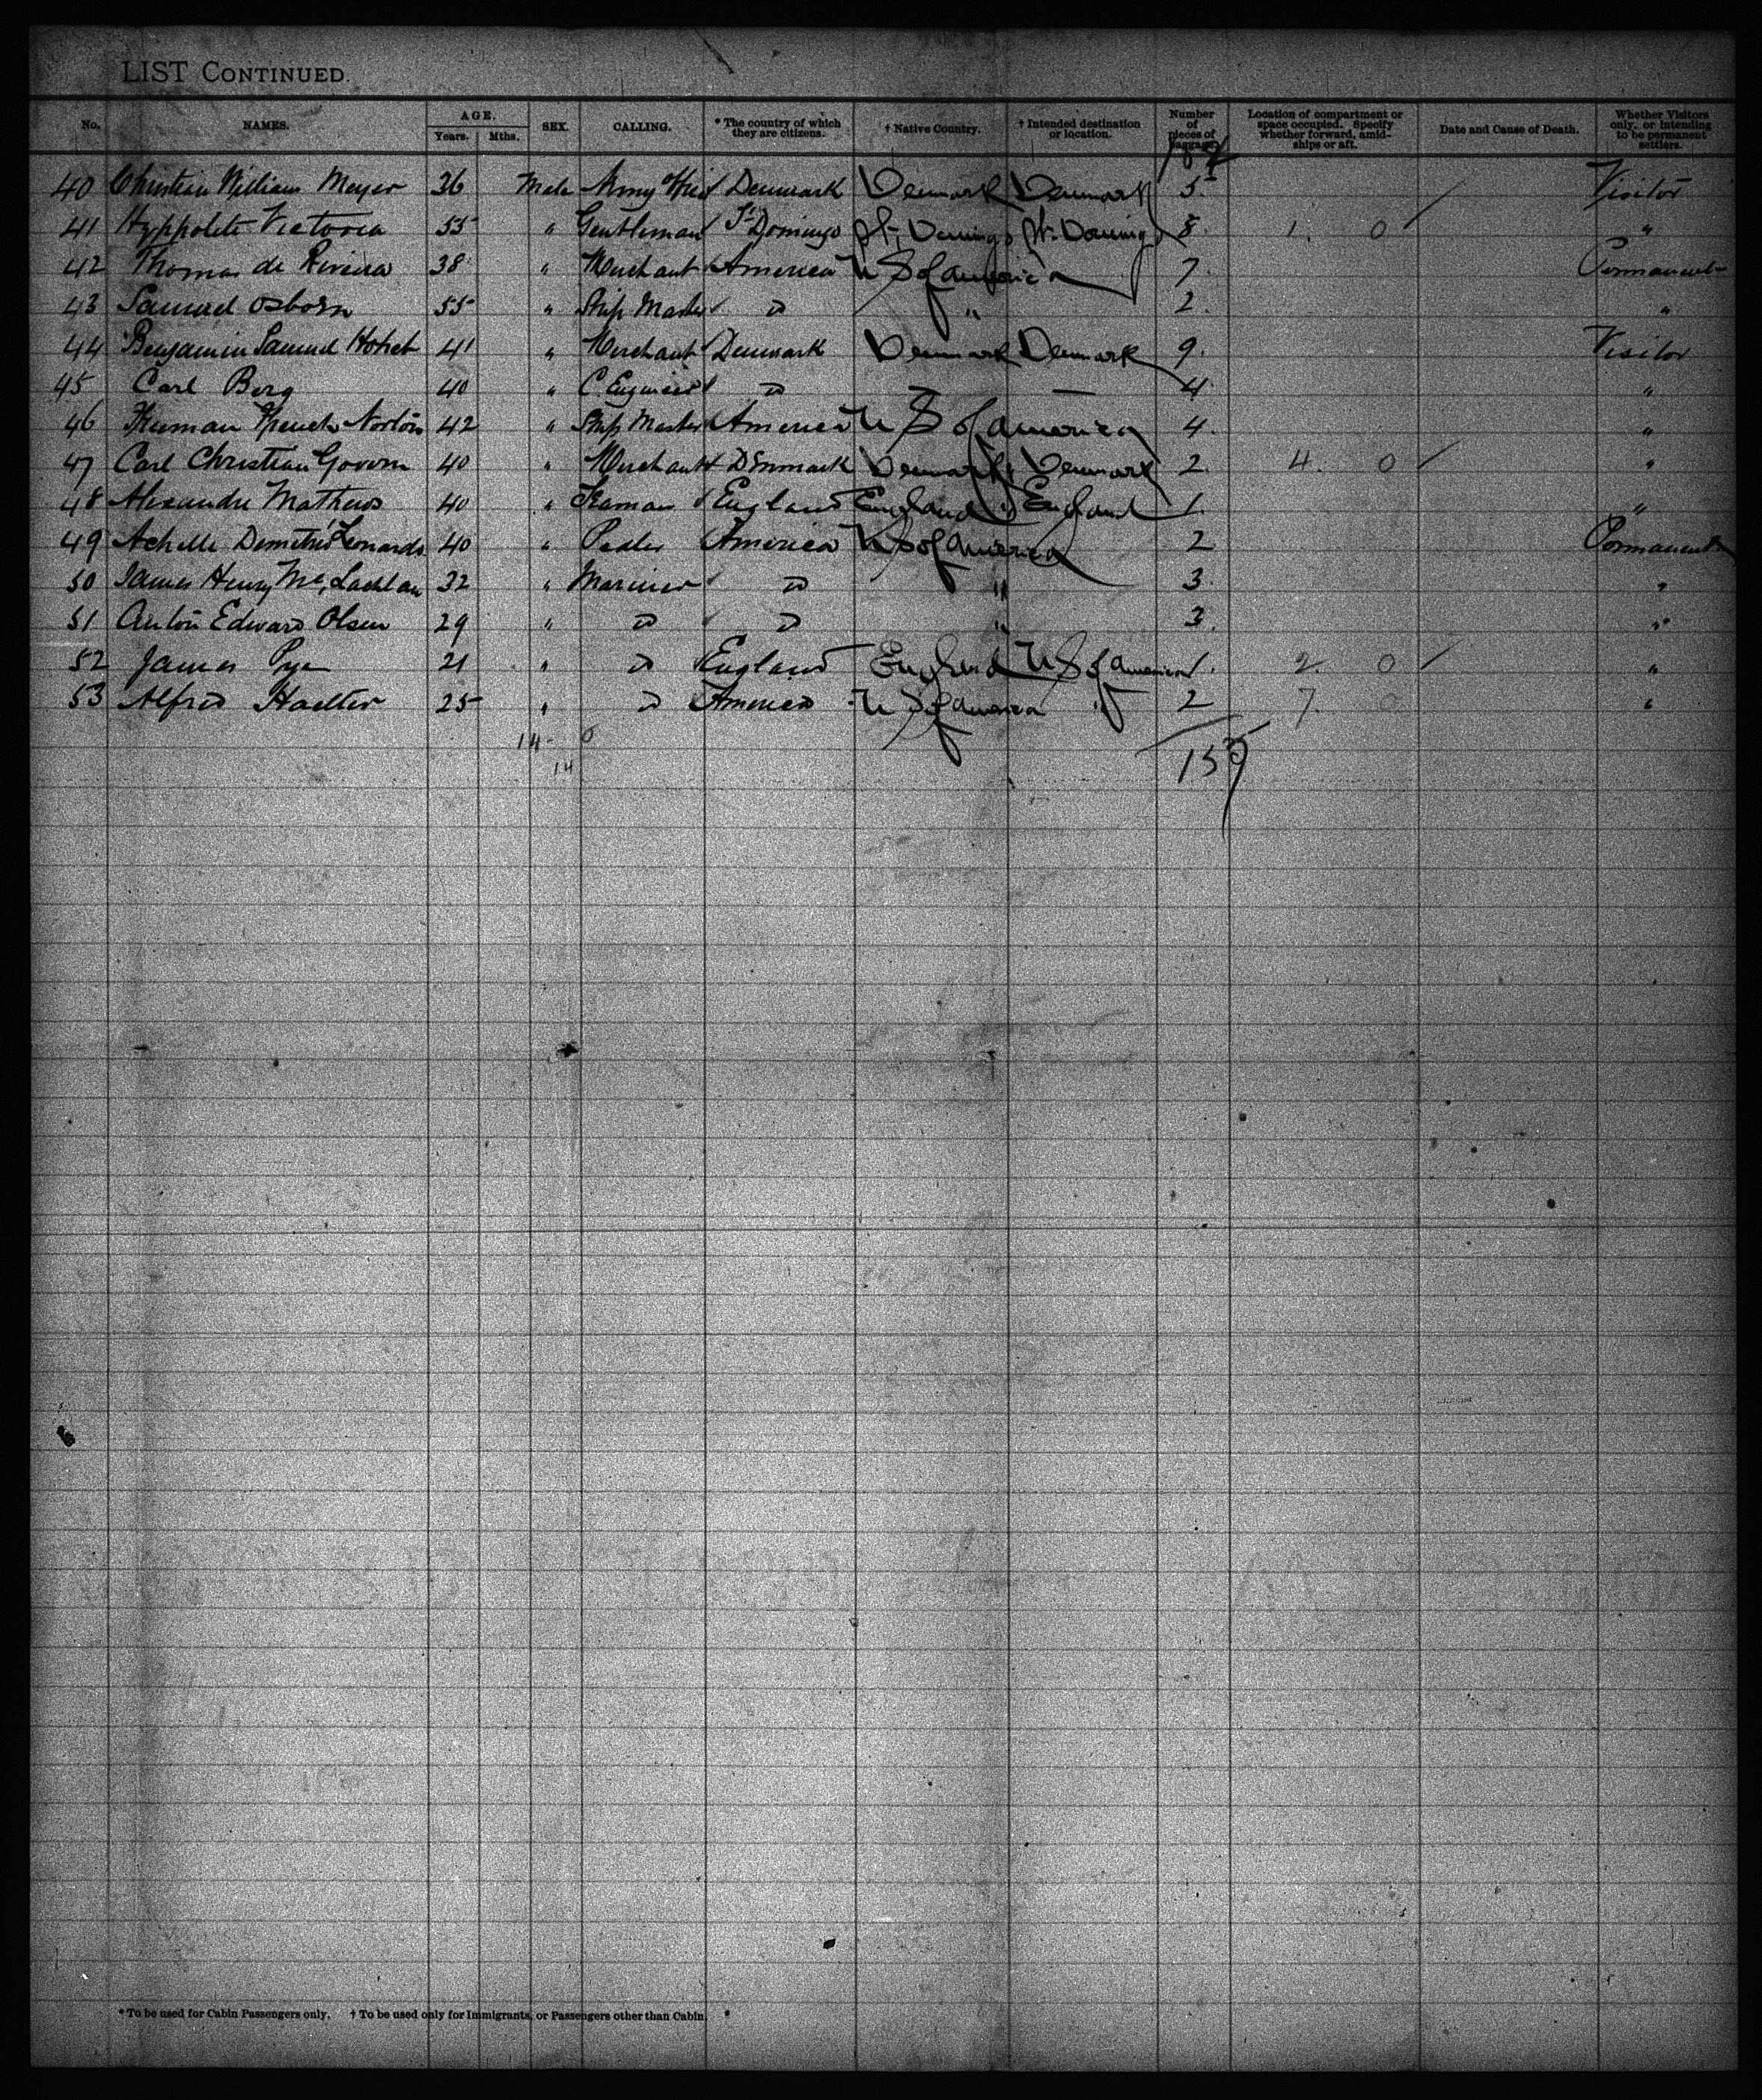 LIST CONTINUED.
No. NAMES. AGE. Years. Mths. SEX. CALLING. * The country of which they are citizens. † Native Country. † Intended destination or location. Number of pieces of baggage. Location of compartment or space occupied. Specify whether forward, amidships or aft. Date and Cause of Death. Whether Visitors only, or intending to be permanent settlers.
40 Christian William Meyer 36 Male Army Denmark Denmark Denmark 5 Visitor
41 Hyppolite Victoria 55 " Gentleman St Domingo St. Domingo St. Domingo 8. 1. 0 "
42 Thomas de Riviera 38 " Merchant America U S of america 7. Permanent
43 Samuel Osborn 55 " Ship Master " 2. "
44 Benjamin Samuel 41 " Merchant Denmark Denmark Denmark 9. Visitor
45 Carl Berg 40 " C. Engineer 4. "
46 Norton 42 " Ship Master America U S of america 4. "
47 Carl Christian Govern 40 " Merchant Denmark Denmark Denmark 2. 4. 0 "
48 Alexandre Mathews 40 " England England England 1. "
49 Achille Demetrio Leonardo 40 " Pedler America U S of america 2 Permanent
50 James Henry Mc, Lachlan 32 " Mariner " 3. "
51 Anton Edward Olsen 29 " " 3. "
52 James Pye 21 " England England U S of america 1. 2. 0 "
53 Alfred 25 " America U S of america " 2 7. 0 "
14 - 0
14
159
* To be used for Cabin Passengers only. † To be used only for Immigrants, or Passengers other than Cabin.